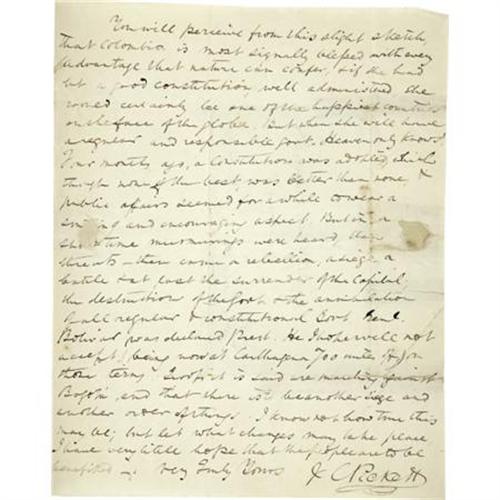 You will perceive from this slight sketch
that Colombia is most signally blessed with every
advantage that nature can confer, & if she had
but a good constitution, well administered she
would certainly be one of the happiest countries
on the face of the globe. But when she will have
a regular and responsible govt. Heaven only knows.
Four months ago, a constitution was adopted, which
though none of the best, was better than none, &
public affairs seemed for a while to wear a
and encouraging aspect. But in a
short time murmurings were heard, then
threats – then came a rebellion, a siege, a
battle & at last the surrender of the Capital,
the destruction of the govt & the annihilation
of all regular & constitutional Govt. Genl.
Bolivar was declared Prest. He I know will not
accept, (being now at Carthagena 700 miles off) on
those terms. & troops it is said are marching against
Bogota, and that there is to be another siege and
another order of things. I know not how true this
may be; but let what changes may take place
I have very little hope that the people are to be
benefitted Very Truly Yours J C Pickett